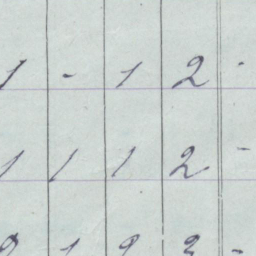 1 - 1 2 -
1 1 1 2 -
2 1 2 3 -